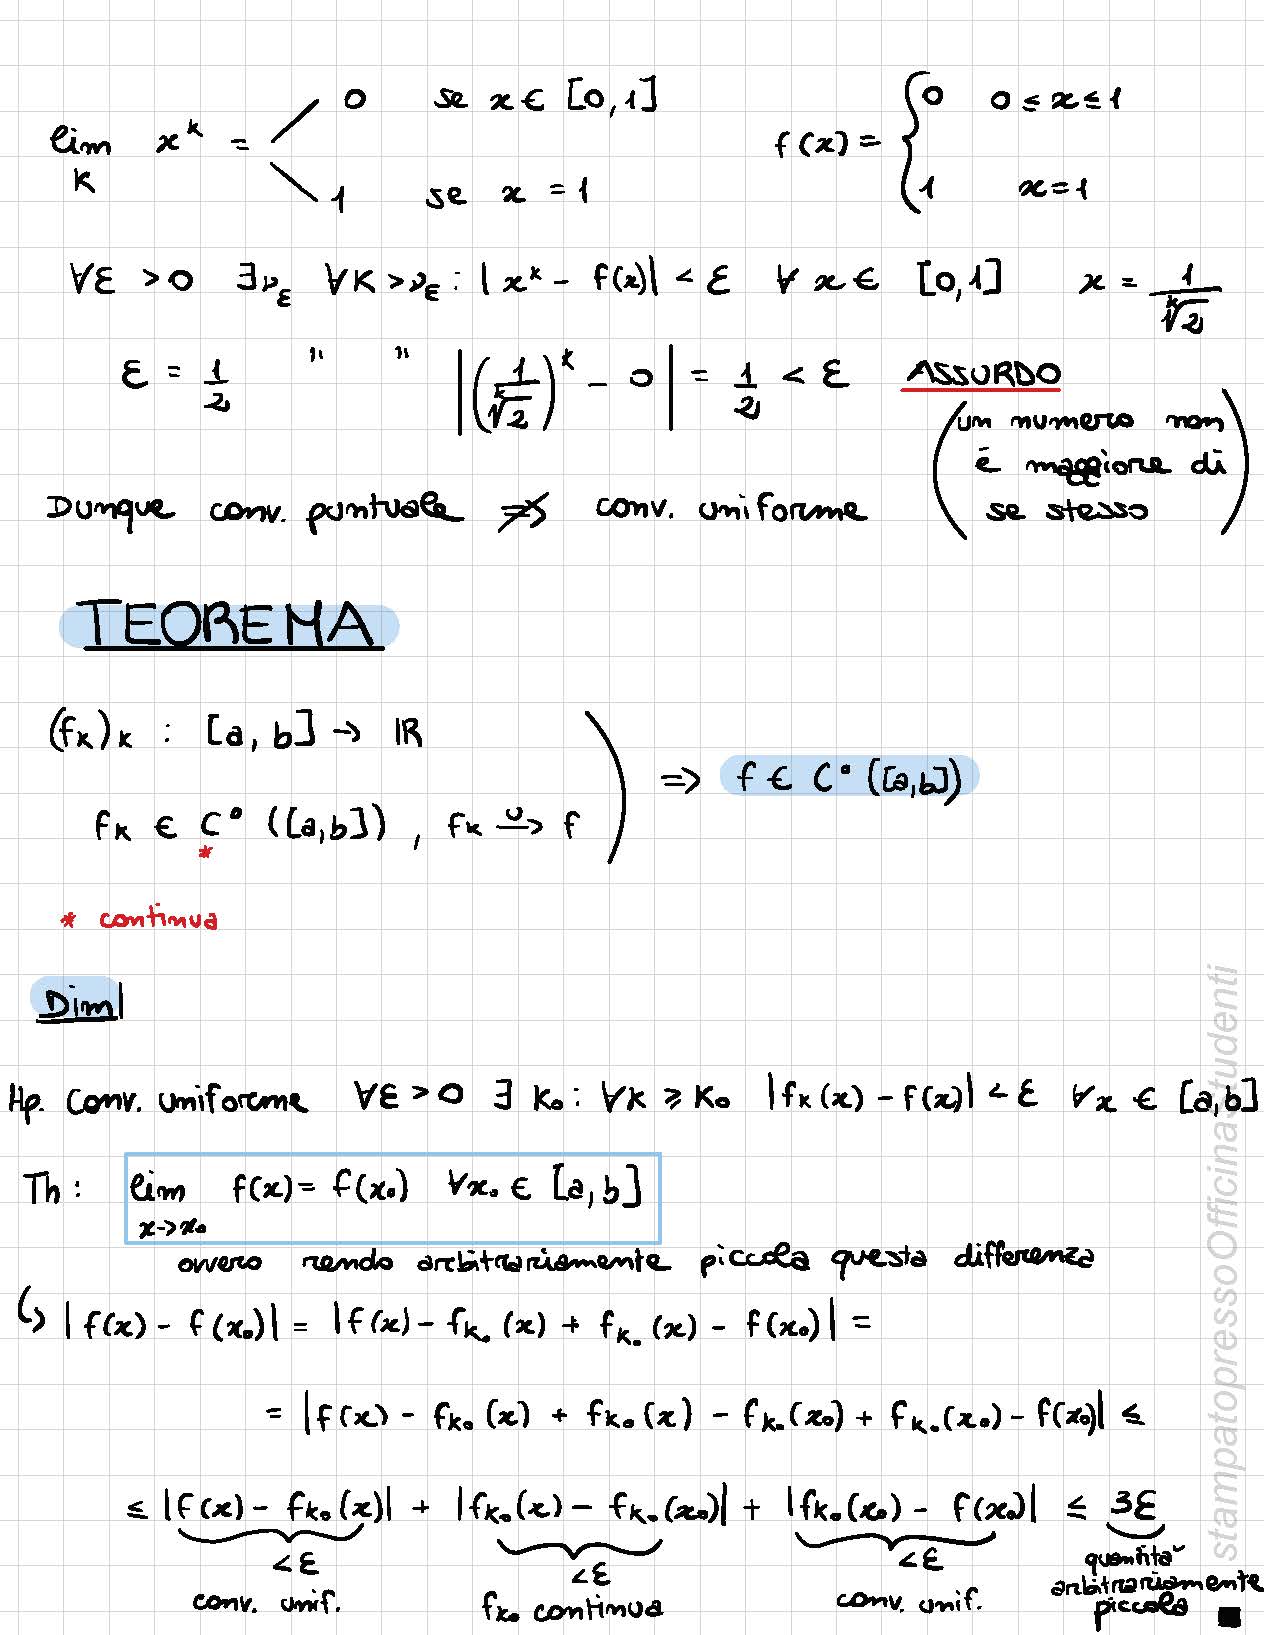 lim_K x^k = 0 se x ∈ [0,1]
1 se x = 1
f(x) = { 0 0 ≤ x ≤ 1
1 x=1
∀ε >0 ∃ν_ε ∀K>ν_ε : | x^k - f(x)| < ε ∀ x ∈ [0,1] x = 1/ᵏ√2
ε = 1/2 " " |(1/ᵏ√2)^k - 0| = 1/2 < ε ASSURDO
(un numero non
è maggiore di
se stesso)
Dunque conv. puntuale ⇏ conv. uniforme
TEOREMA
(f_k)_k : [a,b] → ℝ
f_k ∈ C° ([a,b]) , f_k →^U f ) ⇒ f ∈ C° ([a,b])
*
* continua
Dim|
Hp. conv. uniforme ∀ε>0 ∃ K₀ : ∀k ≥ K₀ |f_k(x) - f(x)| < ε ∀x ∈ [a,b]
Th : lim_{x→x₀} f(x) = f(x₀) ∀x₀ ∈ [a,b]
ovvero rendo arbitrariamente piccola questa differenza
↳ |f(x) - f(x₀)| = |f(x) - f_k₀(x) + f_k₀(x) - f(x₀)| =
= |f(x) - f_k₀(x) + f_k₀(x) - f_k₀(x₀) + f_k₀(x₀) - f(x₀)| ≤
≤ |f(x) - f_k₀(x)| + |f_k₀(x) - f_k₀(x₀)| + |f_k₀(x₀) - f(x₀)| ≤ 3ε
<ε <ε <ε quantità
conv. unif. f_k₀ continua conv. unif. arbitrariamente
piccola ■
stampatopressoOfficinaStudenti